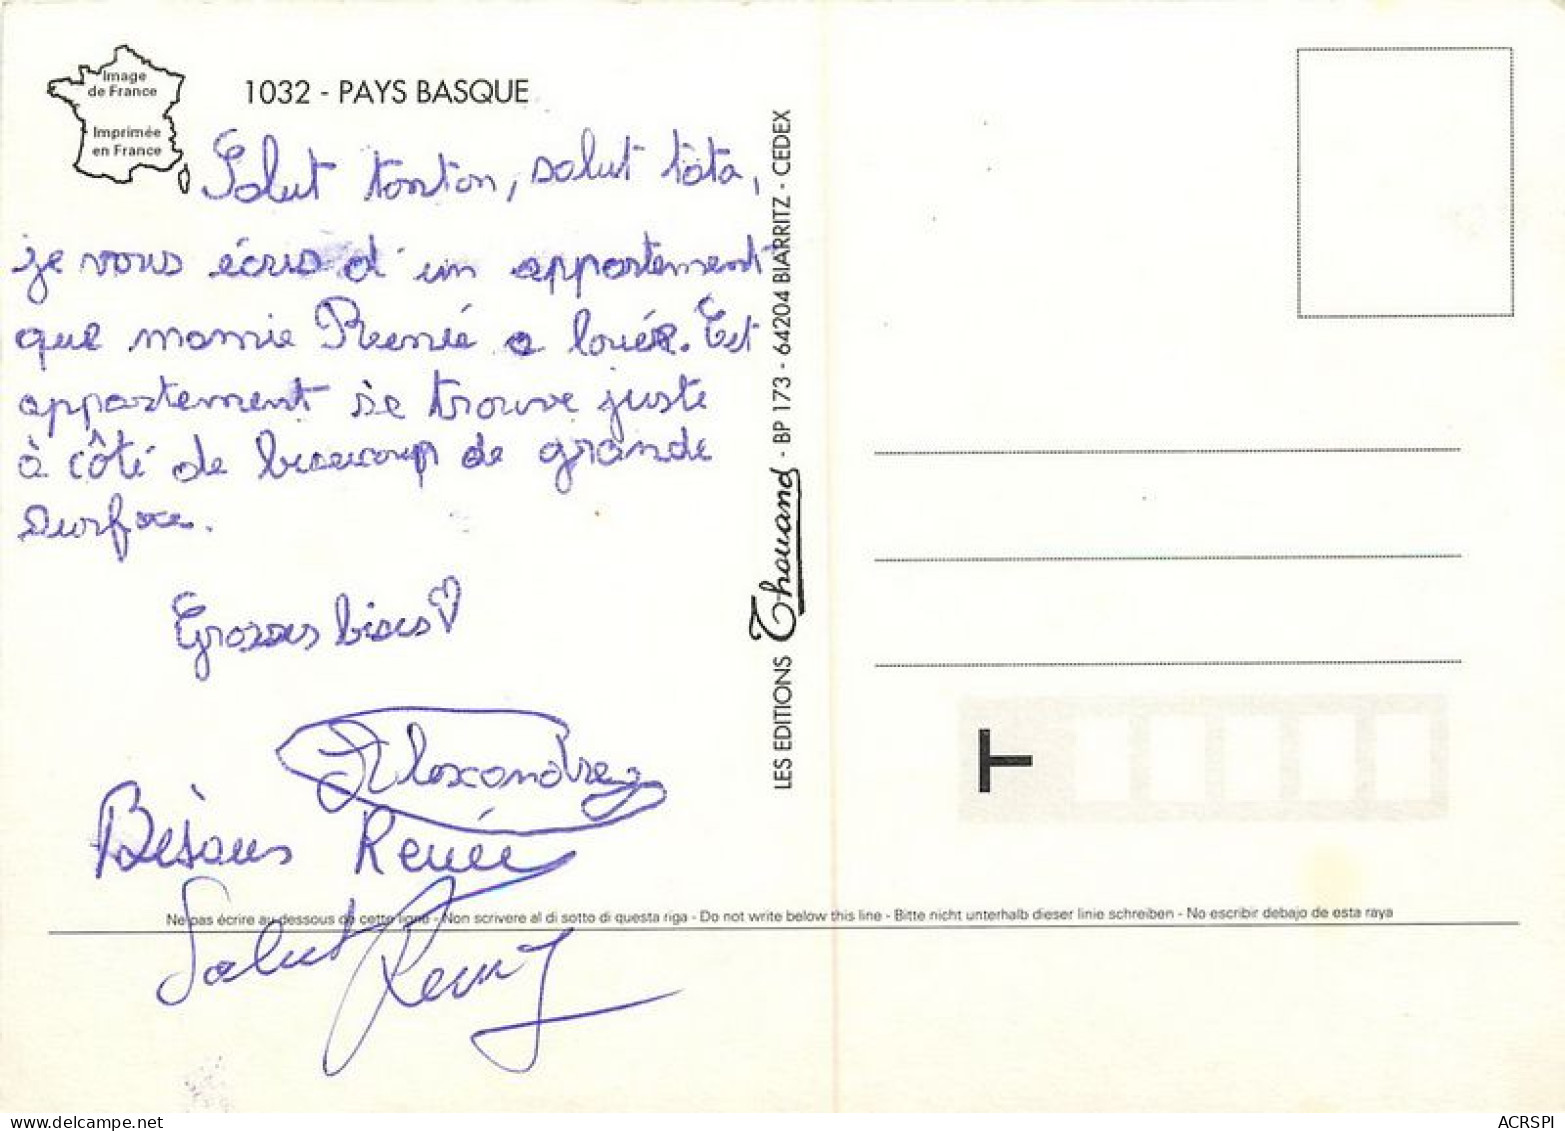 Image
de France
Imprimée
en France
1032 - PAYS BASQUE
Salut tonton, salut tata,
je vous écris d'un appartement
que mamie Renée a louée. Cet
appartement se trouve juste
à côté de beaucoup de grande
surface.
Grosses bises
Alexandre
Bisous Renée
Salut Remy
LES EDITIONS Thouand - BP 173 - 64204 BIARRITZ - CEDEX
T
Ne pas écrire au dessous de cette ligne - Non scrivere al di sotto di questa riga - Do not write below this line - Bitte nicht unterhalb dieser linie schreiben - No escribir debajo de esta raya
ACRSPI